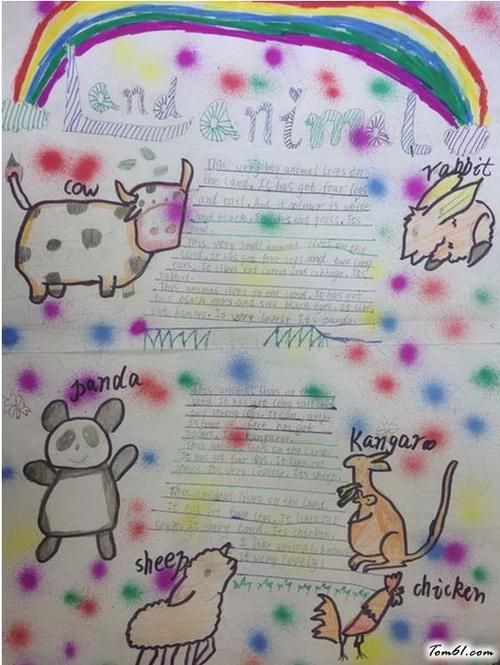 Land animal
cow
rabbit
This very big animal lives on
the land. It has got four legs
and tail. And it colour is white
and black. It eat grass. Its
cow.
This very small animal lives on the
land. It has got four legs and two long
ears. It likes eat carrot and cabbage. It
rabbit.
This animal lives on the land. It has got
two black ears and two black eyes. It likes
eat bamboo. It very lovely. Its panda.
panda
This animal lives on the
land. It has got long tail and
two strong legs. It can jump.
In front of chest has got
Kangaroo
This animal lives on the land.
It has got four legs. It likes eat
grass. Its very lovable. Its sheep.
This animal lives on the land.
It has got two legs. It likes eat
It very loud. Its chicken.
I like animal, because
it very lovely!
sheep
chicken
Tom61.com